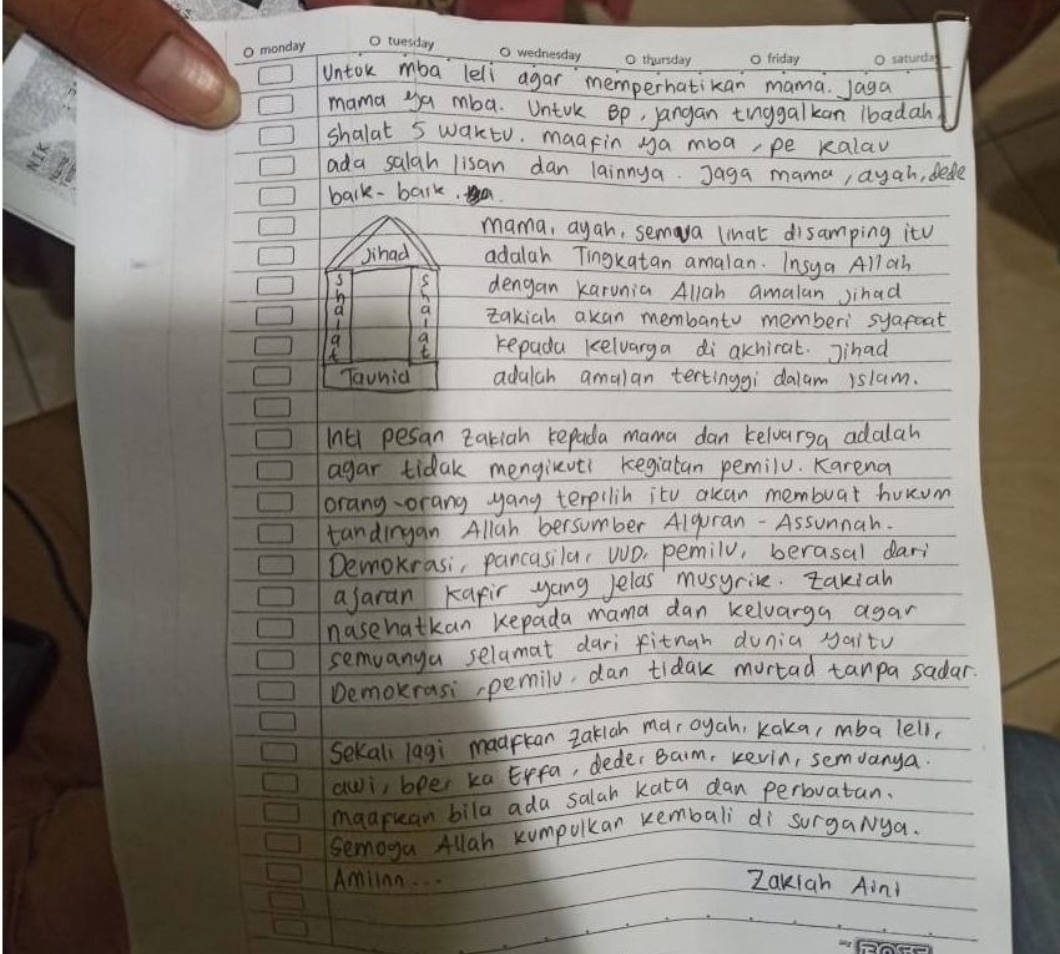 monday tuesday wednesday thursday friday saturday
Untuk mba leli agar memperhatikan mama. Jaga
mama ya mba. Untuk Bp, jangan tinggalkan ibadah
shalat 5 waktu. maafin ya mba, pe kalau
ada salah lisan dan lainnya. Jaga mama, ayah, dede
baik-baik.
mama, ayah, semua lihat disamping itu
Jihad
adalah Tingkatan amalan. Insya Allah
dengan karunia Allah amalan jihad
shalat
shalat
zakiah akan membantu memberi syafaat
kepada keluarga di akhirat. Jihad
Tauhid
adalah amalan tertinggi dalam islam.
Inti pesan zakiah kepada mama dan keluarga adalah
agar tidak mengikuti kegiatan pemilu. Karena
orang-orang yang terpilih itu akan membuat hukum
tandingan Allah bersumber Alquran - Assunnah.
Demokrasi, pancasila, UUD, pemilu, berasal dari
ajaran kafir yang jelas musyrik. Zakiah
nasehatkan kepada mama dan keluarga agar
semuanya selamat dari fitnah dunia yaitu
Demokrasi, pemilu, dan tidak murtad tanpa sadar.
Sekali lagi maafkan zakiah ma, oyah, kaka, mba leli,
awi, bper ka Effa, dede, Baim, kevin, semuanya.
maafkan bila ada salah kata dan perbuatan.
Semoga Allah kumpulkan kembali di surgaNya.
Amiinn...
Zakiah Aini
NIK